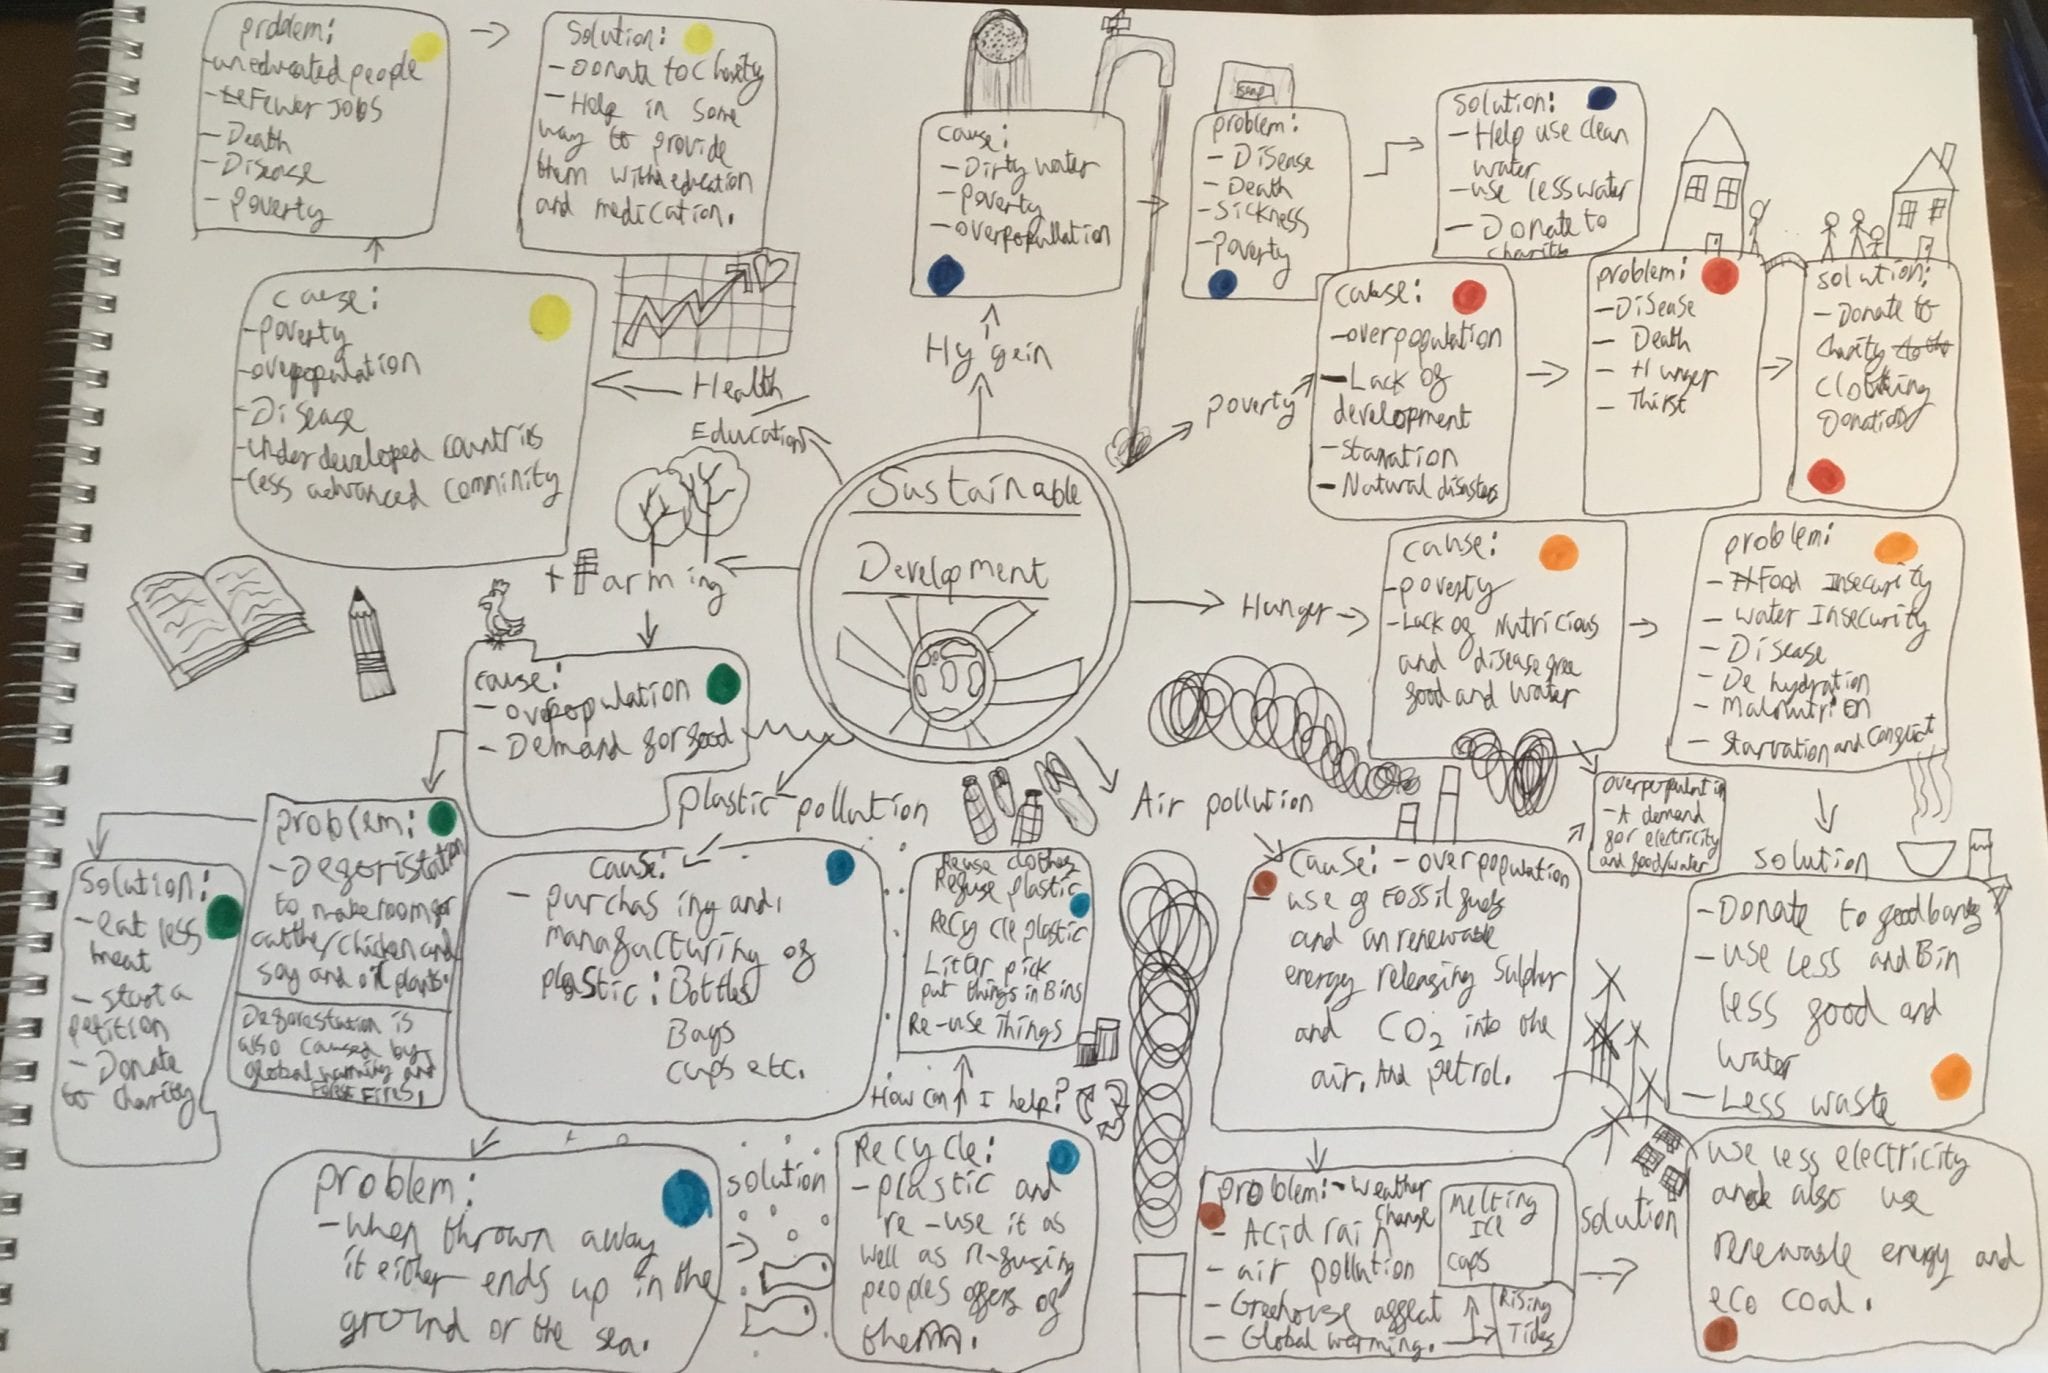 Sustainable
Development
Health
Education
problem:
-uneducated people
-Fewer JOBS
-Death
-Disease
-poverty
Solution:
-Donate to charity
-Help in some
way to provide
them with education
and medication.
cause:
-poverty
-overpopulation
-Disease
-underdeveloped countries
-Less advanced comminity
Hygein
cause:
-Dirty water
-poverty
-overpopullation
soap
problem:
-Disease
-Death
-Sickness
-poverty
Solution:
-Help use clean
water
-use less water
-Donate to
charity
poverty
cause:
-overpopulation
-Lack of
development
-Starvation
-Natural disasters
problem:
-Disease
-Death
-Hunger
-Thirst
solution:
-Donate to
charity
clothing
Donations
Hunger
cause:
-poverty
-Lack of Nutricious
and disease free
food and water
problem:
-Food Insecurity
-water Insecurity
-Disease
-Dehydration
-Malnutrition
-Starvation and conflict
solution
-Donate to foodbanks
-use less and Bin
less food and
water
-Less waste
overpopulation
-A demand
for electricity
and food/water
+ Farming
cause:
-overpopulation
-Demand for food
problem:
-Deforistation
to make room for
cattle/chicken and
soy and oil plants.
Deforestation is
also caused by
global warming and
Forest Fires.
Solution:
-eat less
meat
-start a
petition
-Donate
to charity
plastic pollution
cause:
-purchasing and
manufacturing of
plastic: Bottles
Bags
cups etc.
Re-use clothes
Refuse plastic
Recycle plastic
Litter pick
put things in Bins
Re-use Things
How can I help?
problem:
-when thrown away
it either ends up in the
ground or the sea.
solution
Recycle:
-plastic and
re-use it as
well as re-fusing
peoples offers of
them.
Air pollution
Cause: -overpopulation
-use of Fossil fuels
and unrenewable
energy releasing Sulphur
and CO2 into the
air. And petrol.
problem: -weather
change
-Acid rain
-air pollution
-Greehouse affeat
-Global warming.
Melting
Ice
caps
Rising
Tides
solution
use less electricity
and also use
renewable energy and
eco coal.